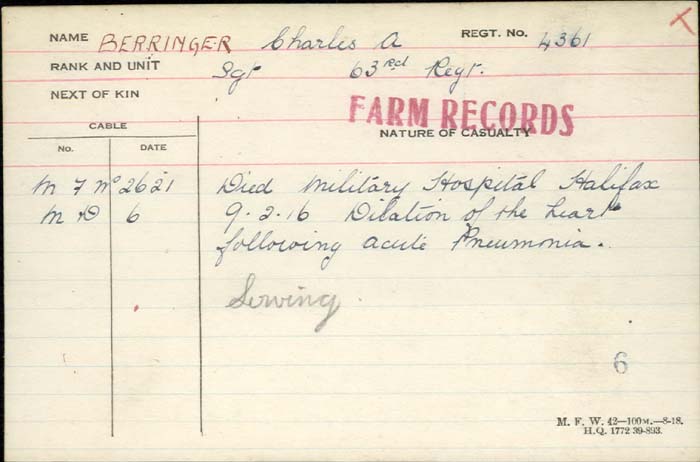 NAME BERRINGER Charles A REGT. No. 4361
RANK AND UNIT Sgt 63rd Regt.
NEXT OF KIN
FARM RECORDS
CABLE NATURE OF CASUALTY
No. DATE
M F W 2621 Died Military Hospital Halifax
M D 6 9.2.16 Dilation of the heart
following acute Pneumonia.
Serving
6
M. F. W. 42—100M.—8-18.
H.Q. 1772 39-893.